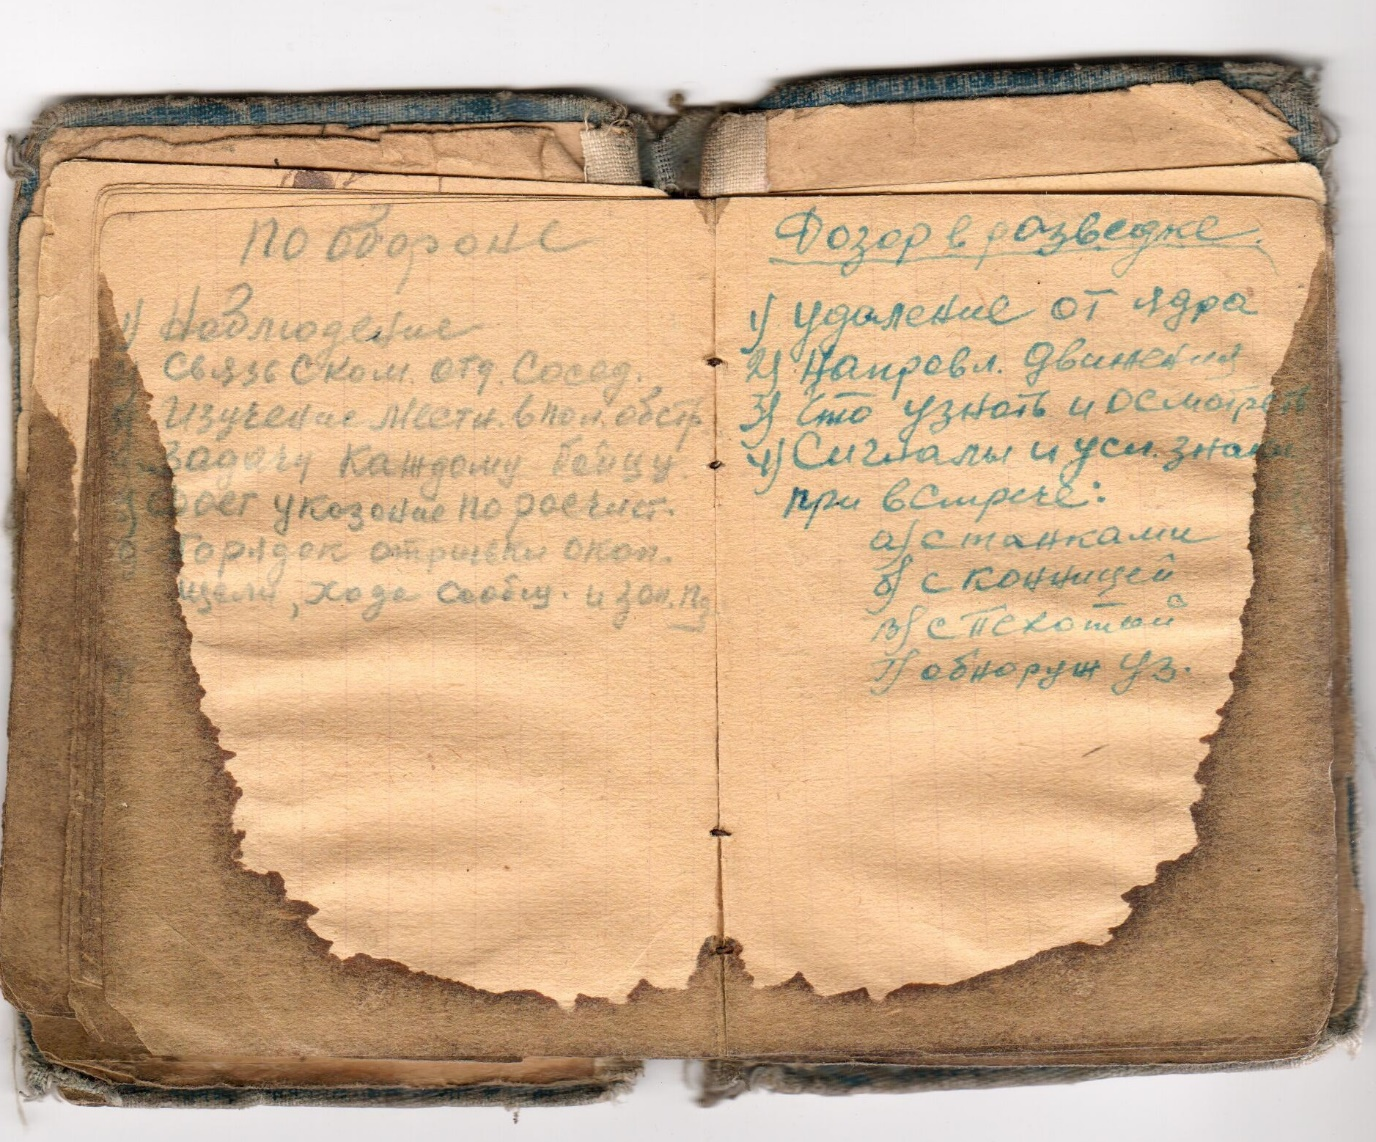 По обороне
1) Наблюдение
Связь с ком. отд. Сосед.
Изучение местн. в пол. обстр
Задачу каждому бойцу.
указание по расчист.
Порядок отрывки окоп.
щели, хода сообщ. и зап.
Дозор в разведке.
1) Удаление от ядра
2) Направл. движения
3) Что узнать и осмотреть
4) Сигналы и усл. знаки
при встрече:
а) с танками
б) с конницей
в) с пехотой
г) обнаруж УЗ.